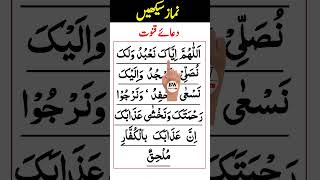 نماز سیکھیں
دعائے قنوت
اَللّٰهُمَّ اِيَّاكَ نَعْبُدُ وَلَكَ
نُصَلِّيْ جُدُ وَاِلَيْكَ
نَسْعٰى حْفِدُ وَنَرْجُوْا
رَحْمَتَكَ وَنَخْشٰى عَذَابَكَ
اِنَّ عَذَابَكَ بِالْكُفَّارِ
مُلْحِقٌ